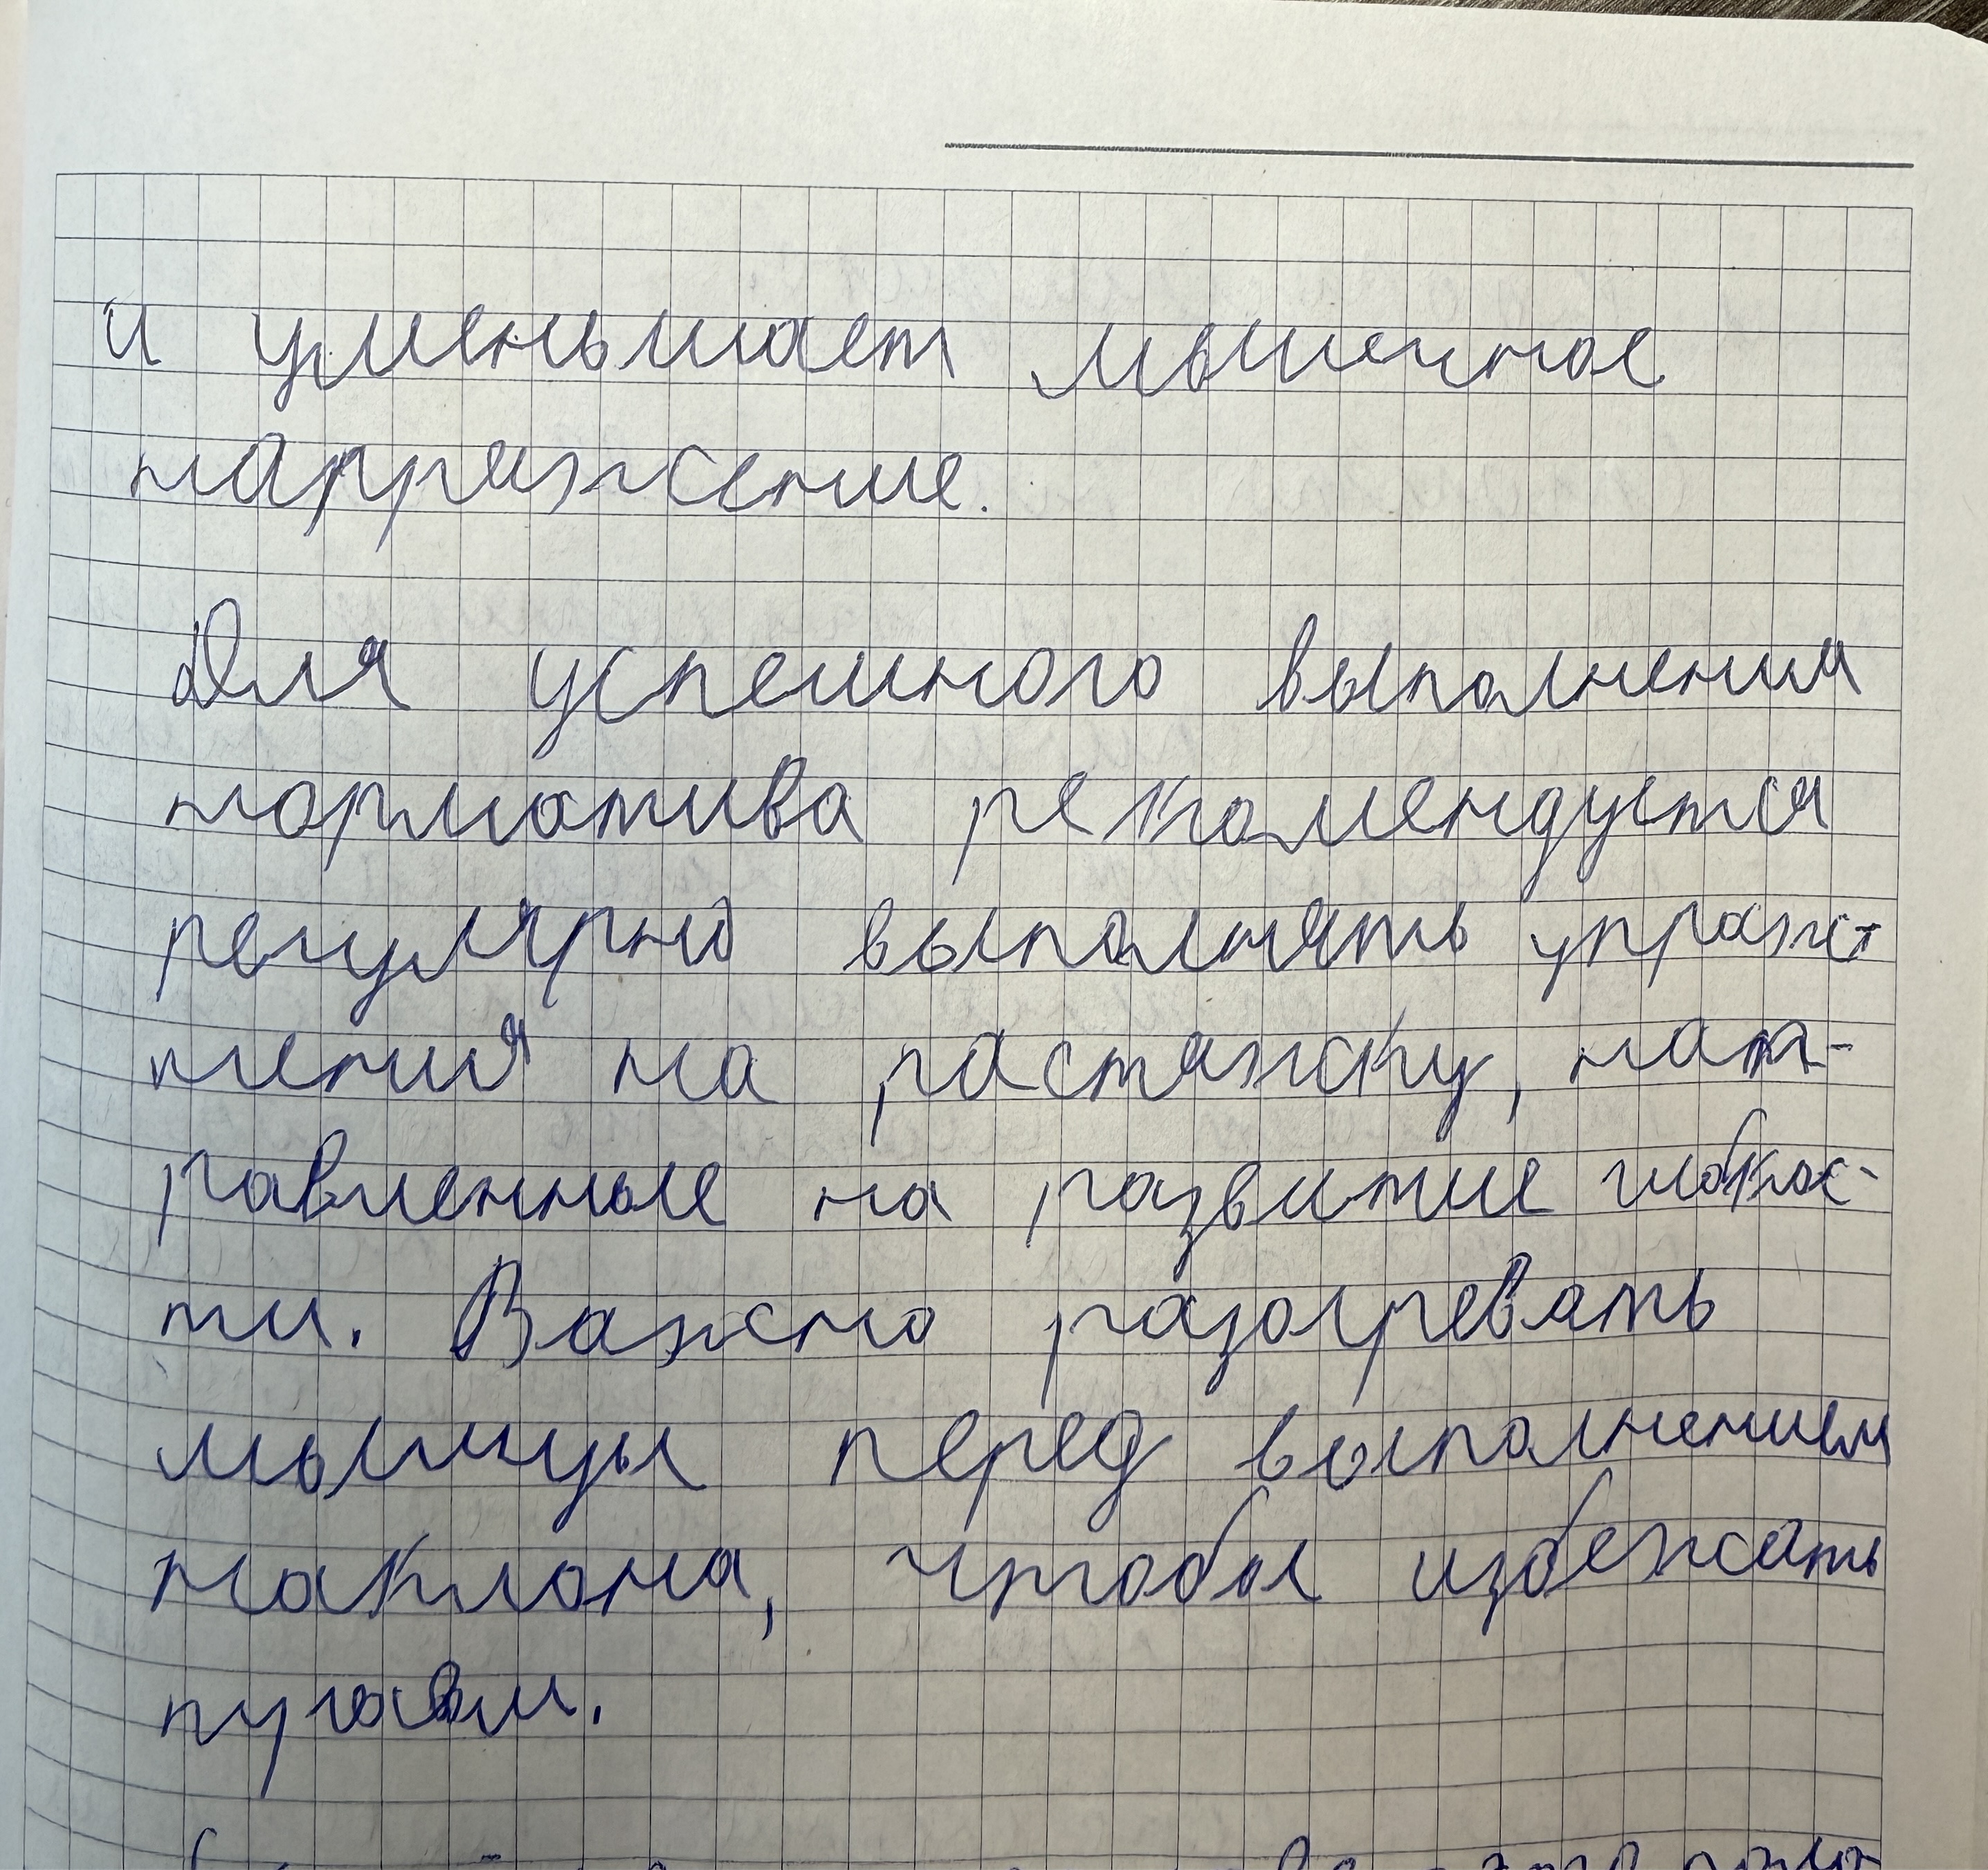 и уменьшает мышечное
напряжение.
Для успешного выполнения
норматива рекомендуется
регулярно выполнять упраж-
нения на растяжку, нап-
равленные на развитие гибкос-
ти. Важно разогревать
мышцы перед выполнением
наклона, чтобы избежать